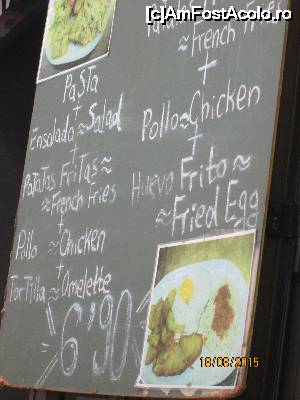 (c)AmFostAcolo.ro
Pasta
+
Ensalada ≈ Salad
+
Patatas Fritas ≈
≈ French Fries
+
Pollo ≈ Chicken
+
Tortilla ≈ Omelette
6'90
≈ French Fries
+
Pollo ≈ Chicken
+
Huevo Frito ≈
≈ Fried Egg
18/08/2015